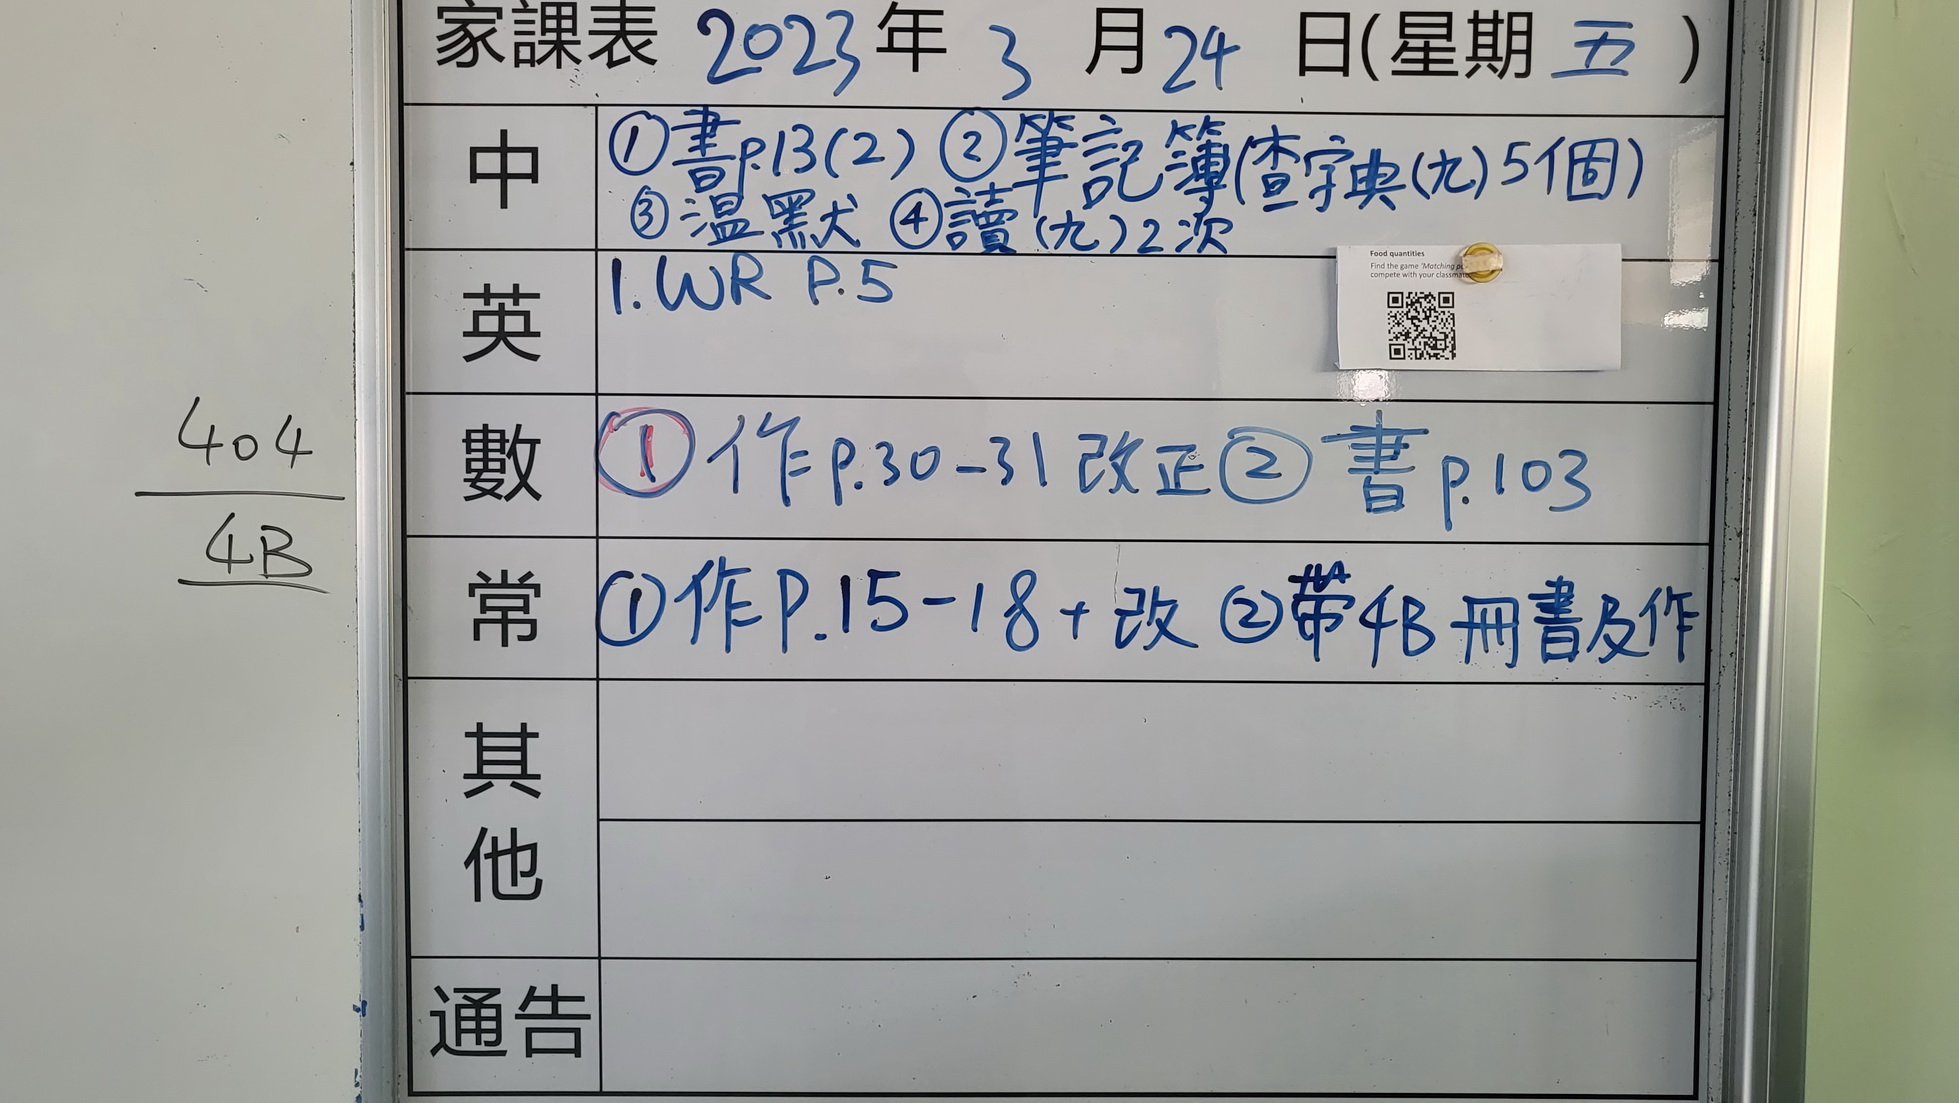 家課表 2023年 3 月 24 日(星期 五 )
中
①書p.13(2) ②筆記簿(查字典(九)5個)
③溫默 ④讀(九)2次
英
1.WR P.5
Food quantities
Find the game 'Matching
compete with your
數
①作p.30-31改正②書p.103
常
①作P.15-18+改 ②帶4B冊書及作
其他
通告
404
4B